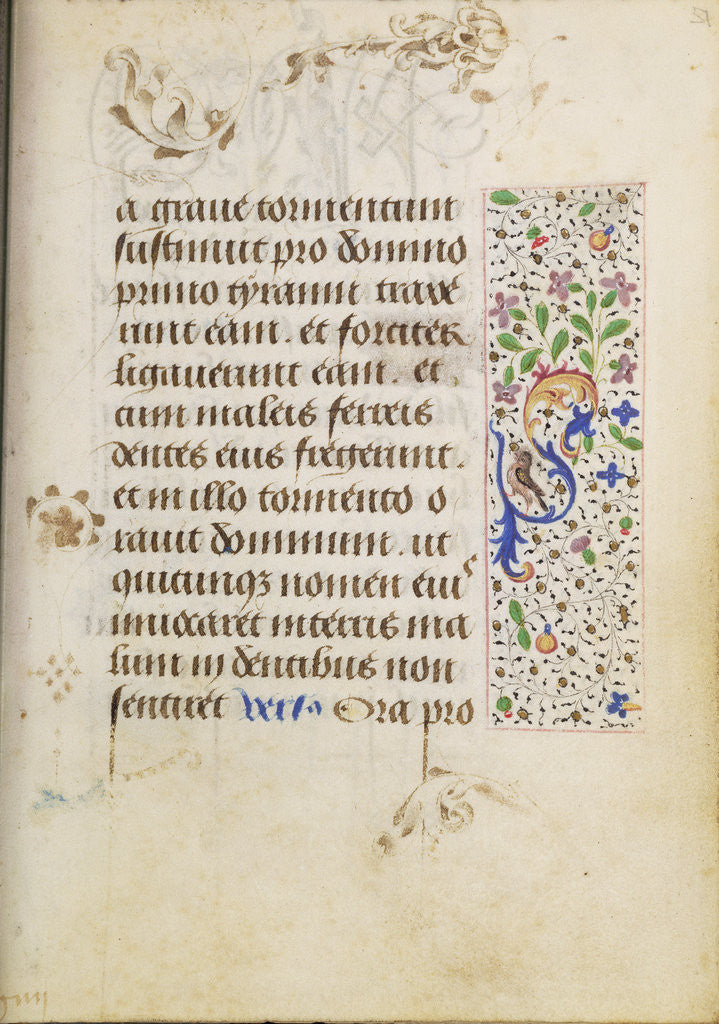 51
a graue tormentum
sustinuit pro domino
primo tyranni traxe
runt eam . et fortiter
ligauerunt eam . et
cum maleis ferreis
dentes eius fregerunt .
et in illo tormento o
rauit dominum . ut
quicunqꝫ nomen eius
inuocaret in terris ma
lum in dentibus non
sentiret verso Ora pro